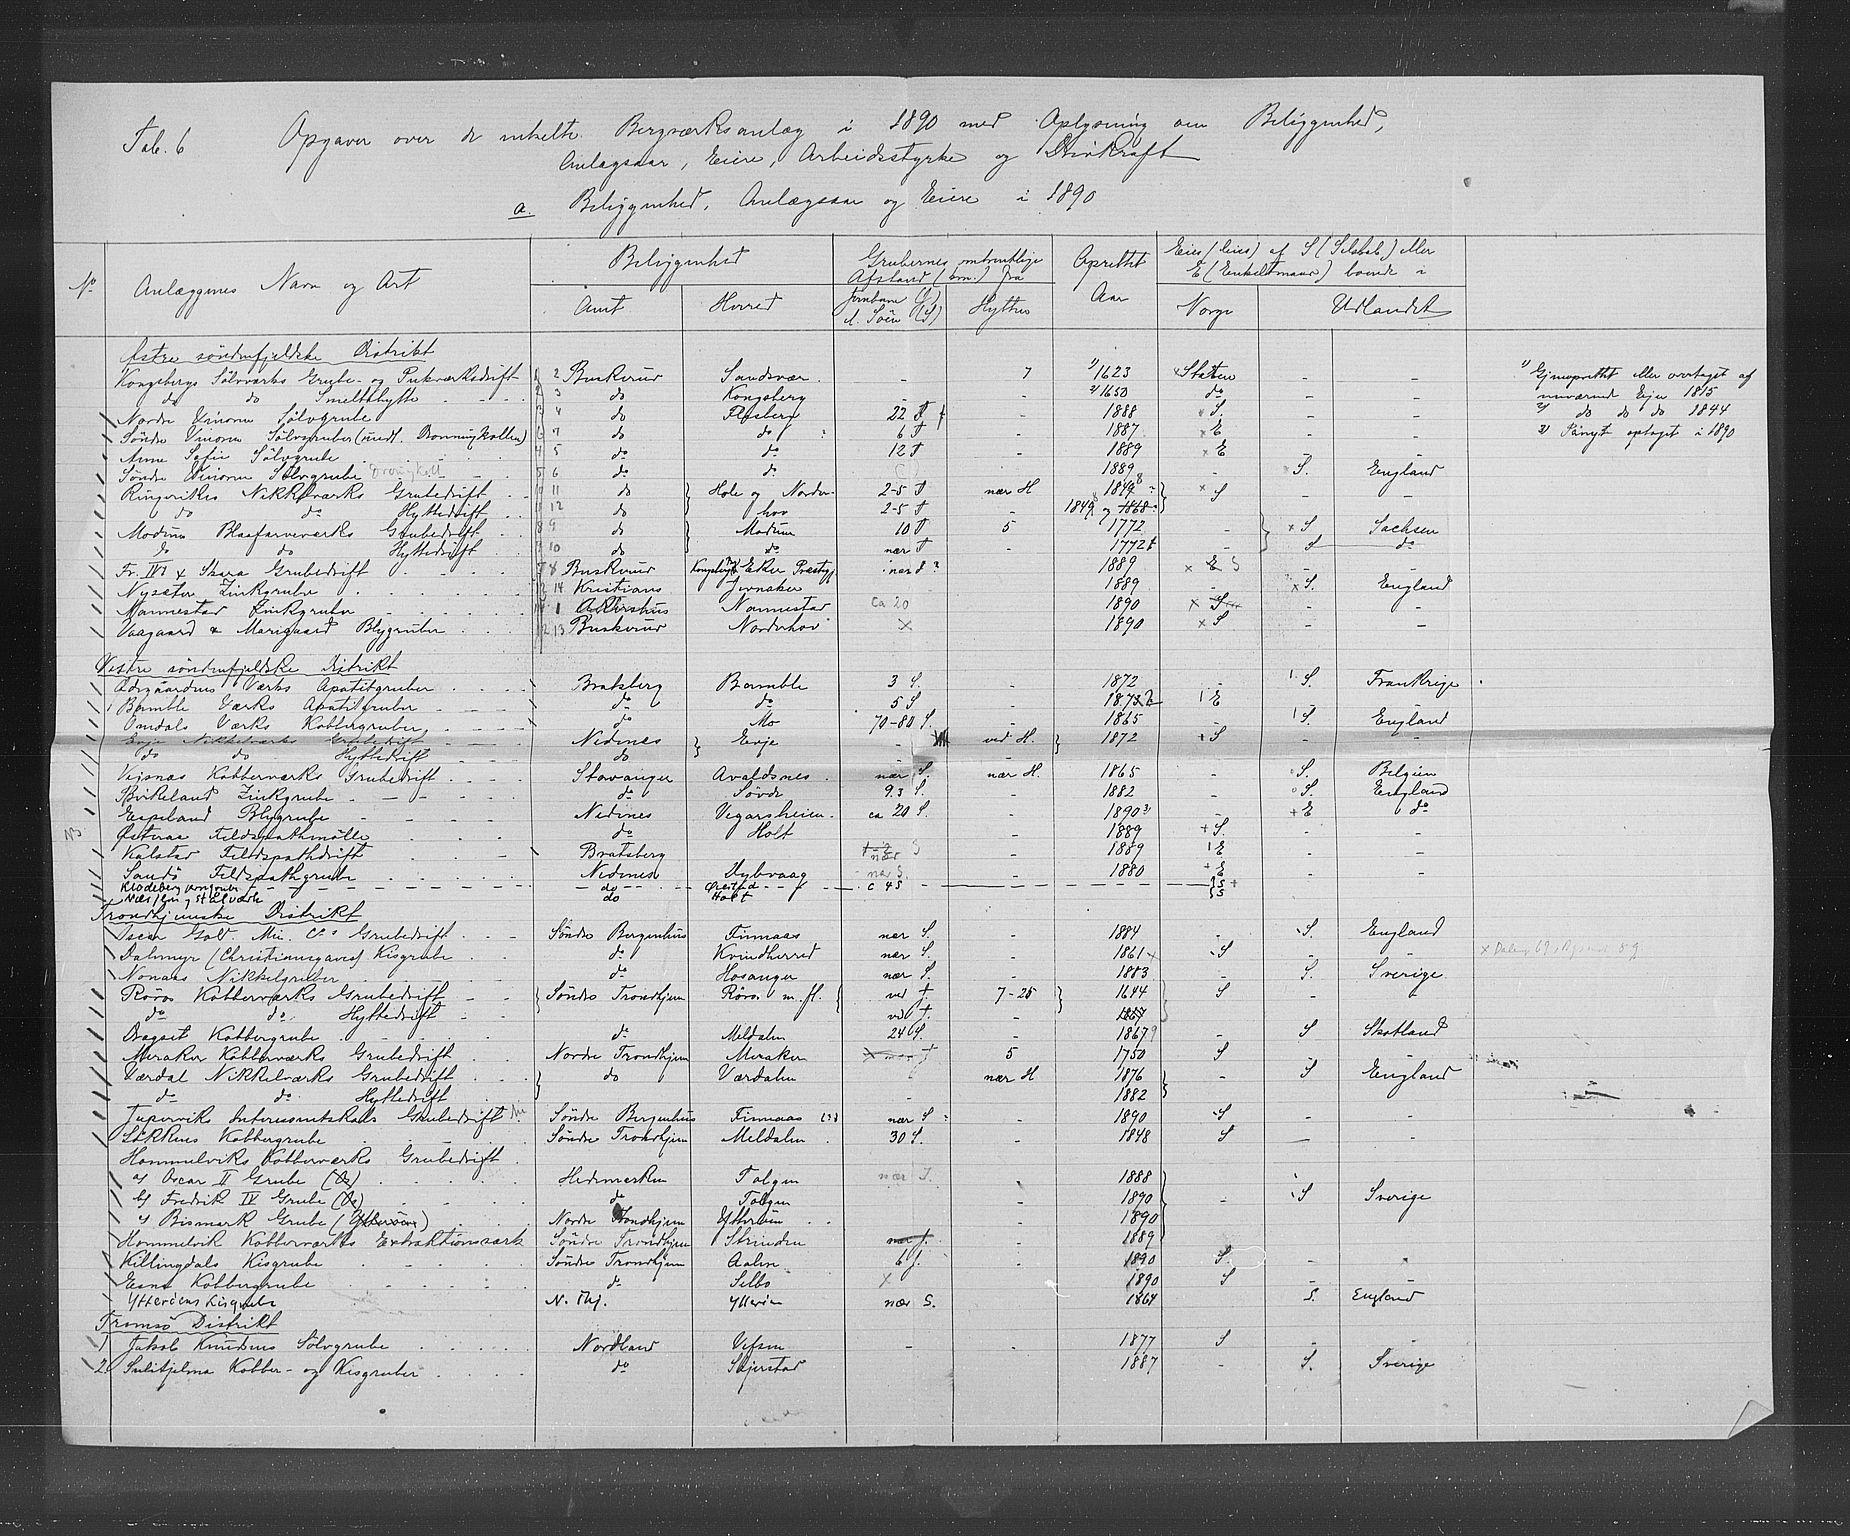 Tab. 6 Opgaver over de enkelte Bergværksanlæg i 1890 med Oplysning om Beliggenhed,
Anlægsaar, Eiere, Arbeidsstyrke og Drivkraft
a. Beliggenhed, Anlægsaar og Eiere i 1890
No Anlæggenes Navn og Art Beliggenhed Grubernes omtrentlige Afstand (km.) fra Oprettet Aar Eies (eies) af S (Selskab) eller E (Enkeltmand) boende i
Amt Herred Jernbane (J) el. Søen (S) Hytten Norge Udlandet
Østre søndenfjeldske Distrikt
Kongsbergs Sølvværks Grube- og Pukværksdrift 1 2 Buskerud Sandsvær - 7 1) 1623 Staten - -
do do Smeltehytte 2 3 do Kongsberg - - 2) 1650 do - -
Nordre Vinoren Sølvgrube 3 4 do Flesberg 22 J - 1888 S. - -
Søndre Vinoren Sølvgruber (undt. Dronningkollen) 6 7 do do 6 J - 1887 E - -
Anne Sofie Sølvgrube 4 5 do do 12 J - 1889 E - -
Søndre Vinoren Sølvgrube 5 6 do do - 1889 - S. England
Ringerikes Nikkelværks Grubedrift 11 do Hole og Norder- 2-5 J nær H 1849 S - -
do do Hyttedrift 12 do hov 2-5 J - 1849 og 1868
Modums Blaafarveværks Grubedrift 8 9 do Modum 10 J 5 1772 - S Sachsen
do do Hyttedrift 9 10 do do nær J - 1772 - S do
Fr. IV & Skara Grubedrift 7 8 Buskerud Eker nær J - 1889 E S - -
Nysæter Zinkgrube 14 Kristians Jevnaker - 1889 S. England
Mannestad Zinkgruber 1 Akershus Nannestad ca 20 - 1890 S - -
Vaagaard & Marigaard Blygruber 12 13 Buskerud Norderhov × - 1890 S - -
Vestre søndenfjeldske Distrikt
Ødegaardens Værks Apatitgruber Bratsberg Bamble 3 S. - 1872 - S. Frankrige
Bamble Værks Apatitgruber do do 5 S - 1873 E
Omdals Værks Kobbergruber do Mo 70-80 S. - 1865 - S. England
Evje Nikkelværks Grubedrift Nedenes Evje - ved H. 1872 S - -
do do Hyttedrift do -
Visnæs Kobberværks Grubedrift Stavanger Avaldsnes nær S. nær H. 1865 - S. Belgien
Birkeland Zinkgrube do Søvde 9.3 S. - 1882 S. England
Espeland Blygrube Nedenes Vegarsheien ca 20 S. - 1890 3) - E do
Østeraa Feldspathmølle do Holt - 1889 S. - -
Kalstad Feldspathdrift Bratsberg nær S - 1889 E - -
Sandø Feldspathgrube Nedenes Dybvaag nær S. - 1880 E - -
Klodeberg jerngrube do Øiestad c 4 S S
Næs Jern og stålverk do Holt S
Trondhjemske Distrikt
Oscar Gold Min. Co.s Grubedrift Søndre Bergenhus Finnaas nær S. - 1884 - S. England
Dalemyr (Christiansgaves) Kisgrube do Kvindherred nær S. - 1861 S - -
Nonaas Nikkelgruber do Hosanger nær S. - 1883 - S. Sverige
Røros Kobberværks Grubedrift Søndre Trondhjem Røros m. fl. ved J. 7-25 1644 S - -
do do Hyttedrift ved J. -
Dragset Kobbergrube do Meldalen 24 S. - 1867 - S Skotland
Meraker Kobberværks Grubedrift Nordre Trondhjem Meraker 5 1750 S - -
Værdal Nikkelværks Grubedrift do Værdalen nær H 1876 - S England
do do Hyttedrift - 1882
Interessentskabs Grubedrift Søndre Bergenhus Finnaas nær S - 1890 S - -
Løkkens Kobbergrube Søndre Trondhjem Meldalen 30 S. - 1848 S - -
Hommelviks Kobberværks Grubedrift
a) Oscar II Grube (Os) Hedemarken Tolgen nær J. 1888
b) Fredrik IV Grube (Os) do Tolgen - 1890 - S Sverige
c) Bismark Grube (Ytterøen) Nordre Trondhjem Ytterøen - 1890
Hommelvik Kobberværks Extraktionsværk Søndre Trondhjem Strinden nær J. - 1889
Killingdals Kisgrube Søndre Trondhjem Aalen 6 J. - 1890 S. - -
Esna Kobbergrube do Selbo × 1890 S - -
Ytterøens kisgrube N. Thj. Ytterøen nær S. 1864 S. England
Tromsø Distrikt
1 Jakob Knudsens Sølvgrube Nordland Vefsen - - 1877 S - -
2 Sulitjelma Kobber- og Kisgruber do Skjerstad 1887 - S. Sverige
1) Gjenoprettet eller overtaget af
nuværende Eier 1815
2) do do do 1844
3) Paanyt optaget i 1890